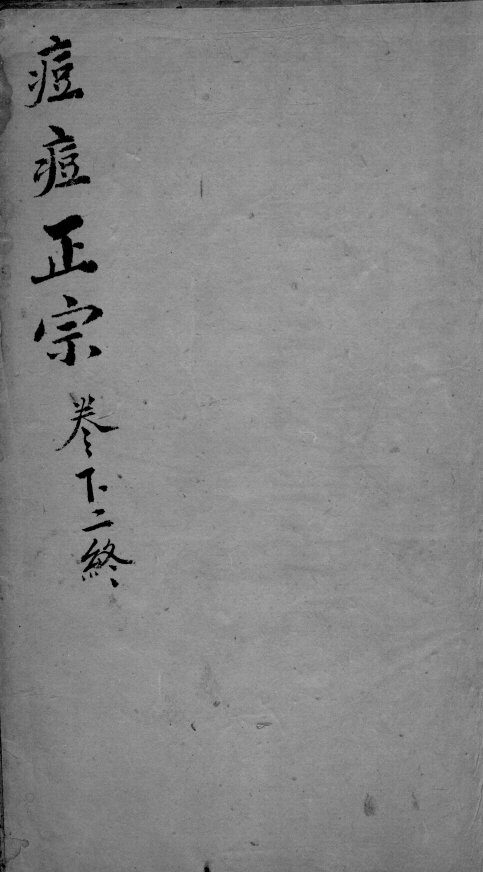 痘痘正宗 卷下二終